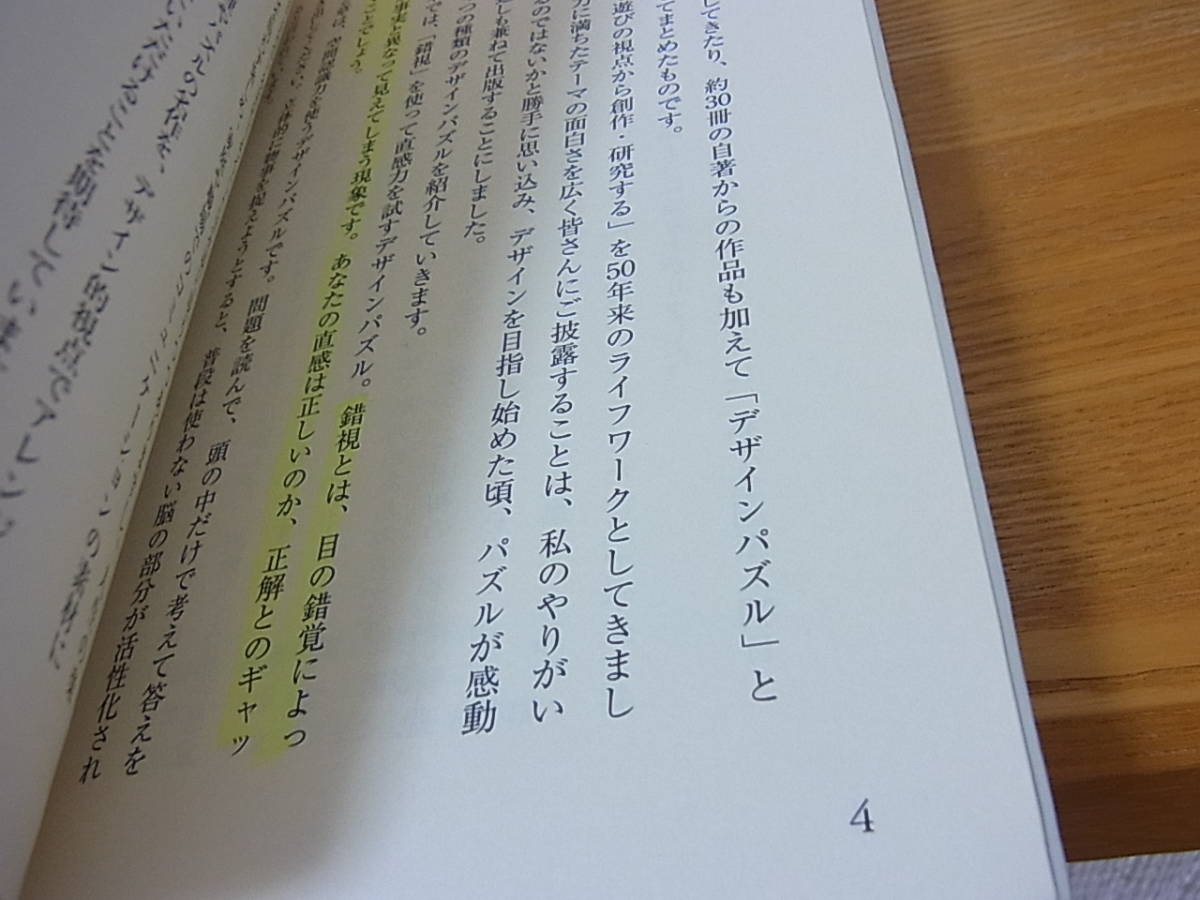 してきたり、約30冊の自著からの作品も加えて「デザインパズル」と
てまとめたものです。
遊びの視点から創作・研究する」を50年来のライフワークとしてきまし
力に満ちたテーマの面白さを広く皆さんにご披露することは、私のやりがい
るのではないかと勝手に思い込み、デザインを目指し始めた頃、パズルが感動
しも兼ねて出版することにしました。
つの種類のデザインパズルを紹介していきます。
では、「錯視」を使って直感力を試すデザインパズル。錯視とは、目の錯覚によっ
事実と異なって見えてしまう現象です。あなたの直感は正しいのか、正解とのギャッ
ことでしょう。
は、空間認識力を使うデザインパズルです。問題を読んで、頭の中だけで考えて答えを
ください。立体的に物事を捉えようとすると、普段は使わない脳の部分が活性化され
の素材に
デザイン的視点でアレンジ
いただけることを期待していま
4